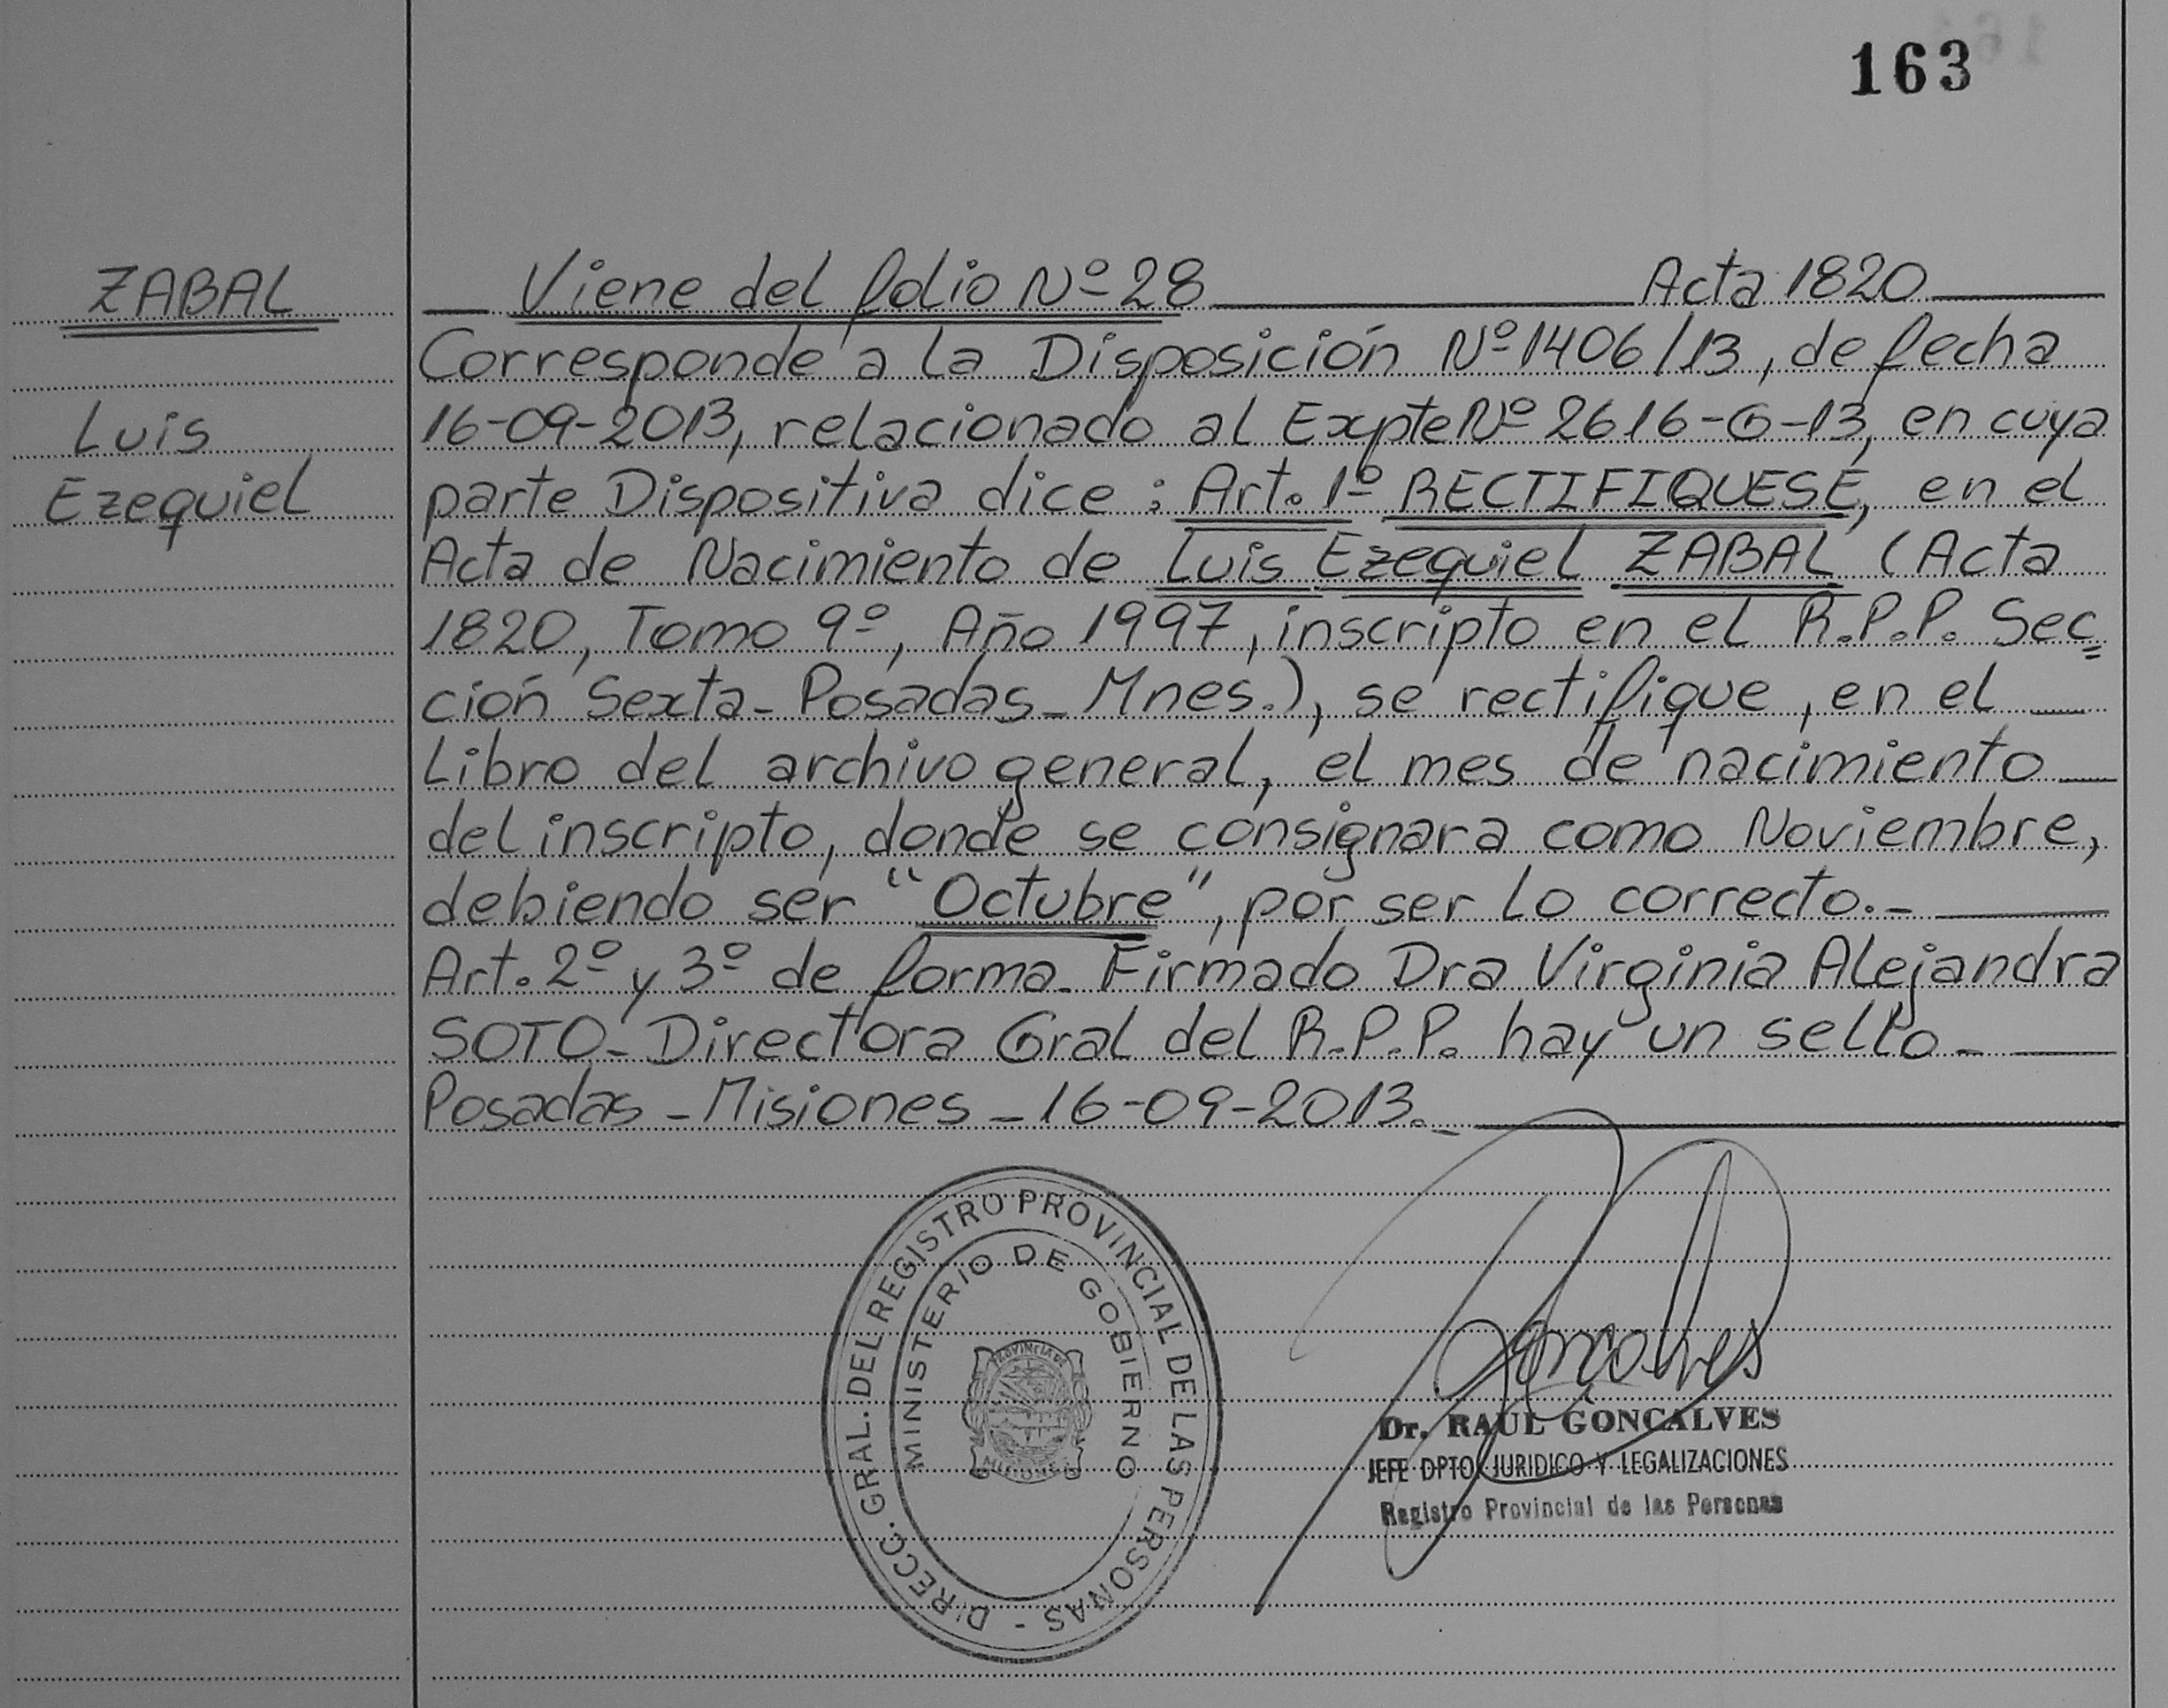 163
ZABAL
Luis
Ezequiel
Viene del folio Nº 28 Acta 1820
Corresponde a la Disposición Nº 1406/13, de fecha
16-09-2013, relacionado al Expte Nº 2616-G-13, en cuya
parte Dispositiva dice: Art. 1º RECTIFIQUESE, en el
Acta de Nacimiento de Luis Ezequiel ZABAL (Acta
1820, Tomo 9º, Año 1997, inscripto en el R.P.P. Sec=
ción Sexta-Posadas-Mnes.), se rectifique, en el
Libro del archivo general, el mes de nacimiento
del inscripto, donde se consignara como Noviembre,
debiendo ser "Octubre", por ser lo correcto.-
Art. 2º y 3º de forma. Firmado Dra Virginia Alejandra
SOTO-Directora Gral del R.P.P. hay un sello-
Posadas-Misiones-16-09-2013.-
DIRECC. GRAL. DEL REGISTRO PROVINCIAL DE LAS PERSONAS -
MINISTERIO DE GOBIERNO
PROVINCIA DE
MISIONES
Gonçalves
Dr. RAUL GONÇALVES
JEFE DPTO JURIDICO Y LEGALIZACIONES
Registro Provincial de las Personas